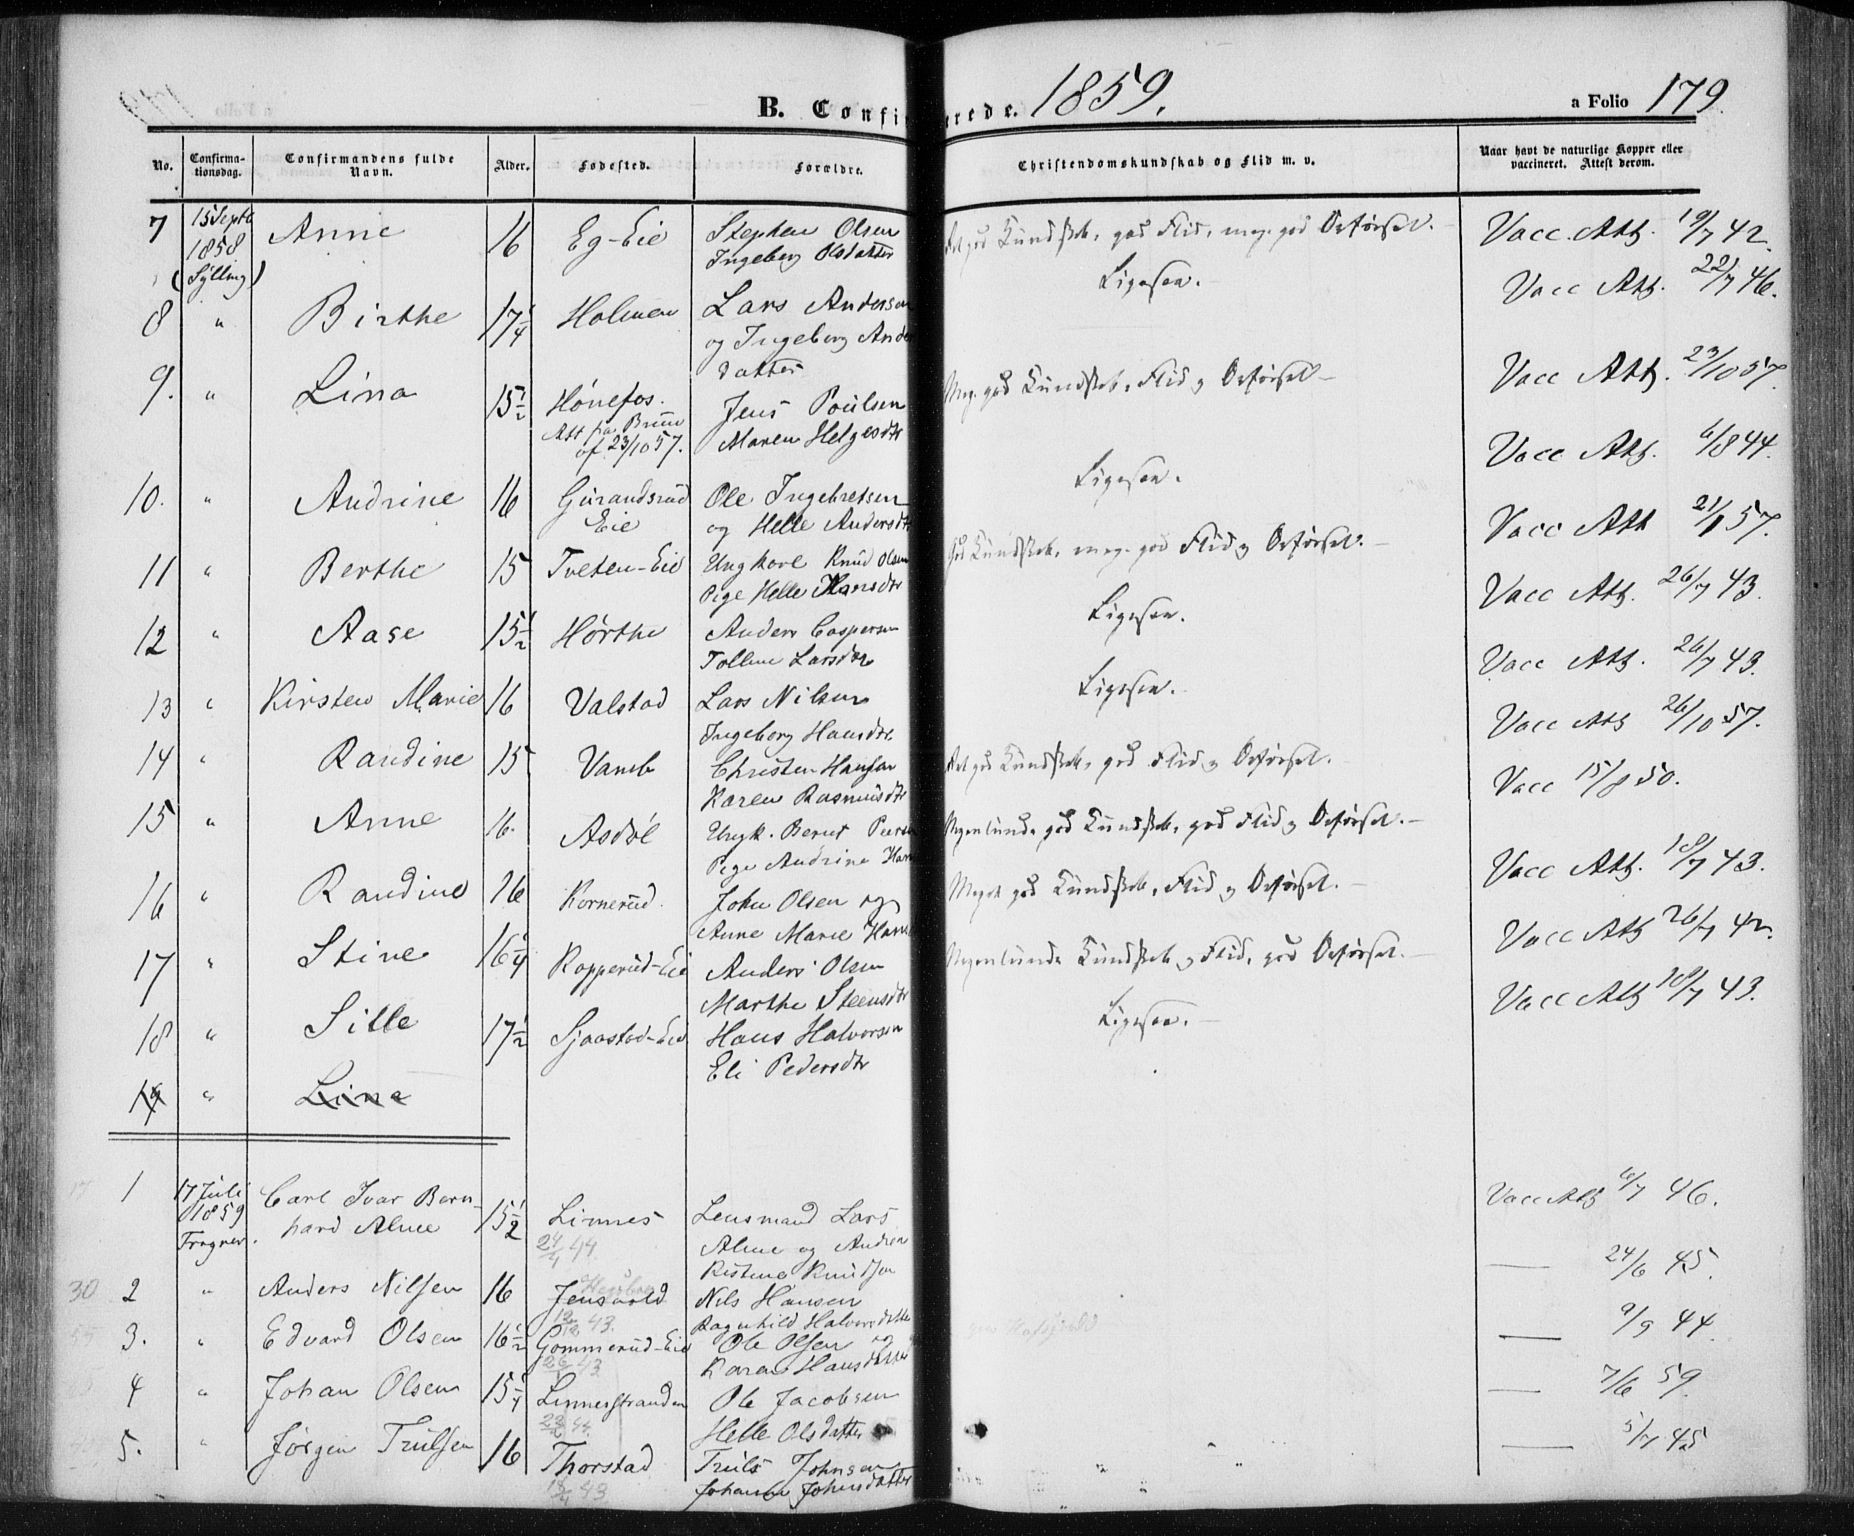 B. Confi rede. 1859. a Folio 179.
No. Confirma-tionsdag. Confirmandens fulde Navn. Alder. Fødested. Forældre. Christendomskundskab og Flid m. v. Naar havt de naturlige Kopper eller vaccineret. Attest derom.
7 15 Septb 1858 (Sylling) Anne 16 Eg-Eie Stephen Olsen Ingeborg Olsdatter god Kundskab, god Flid, meg. god Opførsel. Vacc. Att. 19/7 42.
8 " Birthe 17 1/4 Holmen Lars Anderson og Ingeborg Anders datter Ligesaa. Vacc Att. 22/7 46.
9. " Lina 15 1/2 Hønefos. Att fra Bruun af 23/10 57. Jens Poulsen Maren Helgesdtr Meg. god Kundskab, Flid og Opførsel Vacc Att. 23/10 57.
10. " Andrine 16 Gurandsrud Eie Ole Ingebretsen og Helle Andersdtr Ligesaa. Vacc Att. 6/8 44.
11 " Berthe 15 Tveten-Eie Ungkarl Knud Olsen Pige Helle Hansdtr God Kundskab, meg. god Flid og Opførsel. Vacc Att 21/1 57.
12 " Aase 15 1/2 Hørthe Anders Caspersen Tolline Larsdtr Ligesaa. Vacc Att. 26/7 43.
13 " Kirsten Marie 16 Valstad Lars Nilsen Ingeborg Hansdtr Ligesaa. Vacc Att. 26/7 43.
14 " Randine 15 Vamb Christen Hansen Karen Rasmusdtr god Kundskab, god Flid og Opførsel. Vacc Att 26/10 57.
15 " Anne 16. Asdøl Ungk. Bernt Peersen Pige Andrine Han Nogenlunde god Kundskab, god Flid og Opførsel. Vacc 15/8 50.
16 " Randine 16 Kornerud. John Olsen og Anne Marie Hans Meget god Kundskab, Flid og Opførsel. Vacc Att. 18/7 43.
17 " Stine 16 1/4 Kopperud-Eie Anders Olsen Marthe Steensdtr Nogenlunde Kundskab og Flid, god Opførsel. Vacc Att 26/7 42.
18 " Sille 17 1/2 Sjaastad-Eie Hans Halvorsen Eli Pedersdtr Ligesaa. Vacc Att 18/7 43.
19 " Lina
1 17 Juli 1859 Tragner. Carl Ivar Bernhard Alme 15 1/2 Linnes 24/1 44. Lensmand Lars Alme og Andrea Kistine Knudsen Vacc Att 6/7 46.
30 2 " Anders Nilsen 16 Jensvold 12/12 43. Nils Hansen Ragnhild Halvorsdatter — 24/6 45.
3. " Edvard Olsen 16 1/2 Gommerud-Eie 26/1 43 Ole Olsen og Karen Hansdatter — 9/9 44.
4 " Johan Olsen 15 1/4 Linnesstranden 22/2 44. Ole Jacobsen Helle Olsdatter — 7/6 59.
5. " Jørgen Trulsen 16 Thorstad 18/4 43 Truls Johnsen Johanne Johnsdatter — 5/7 45